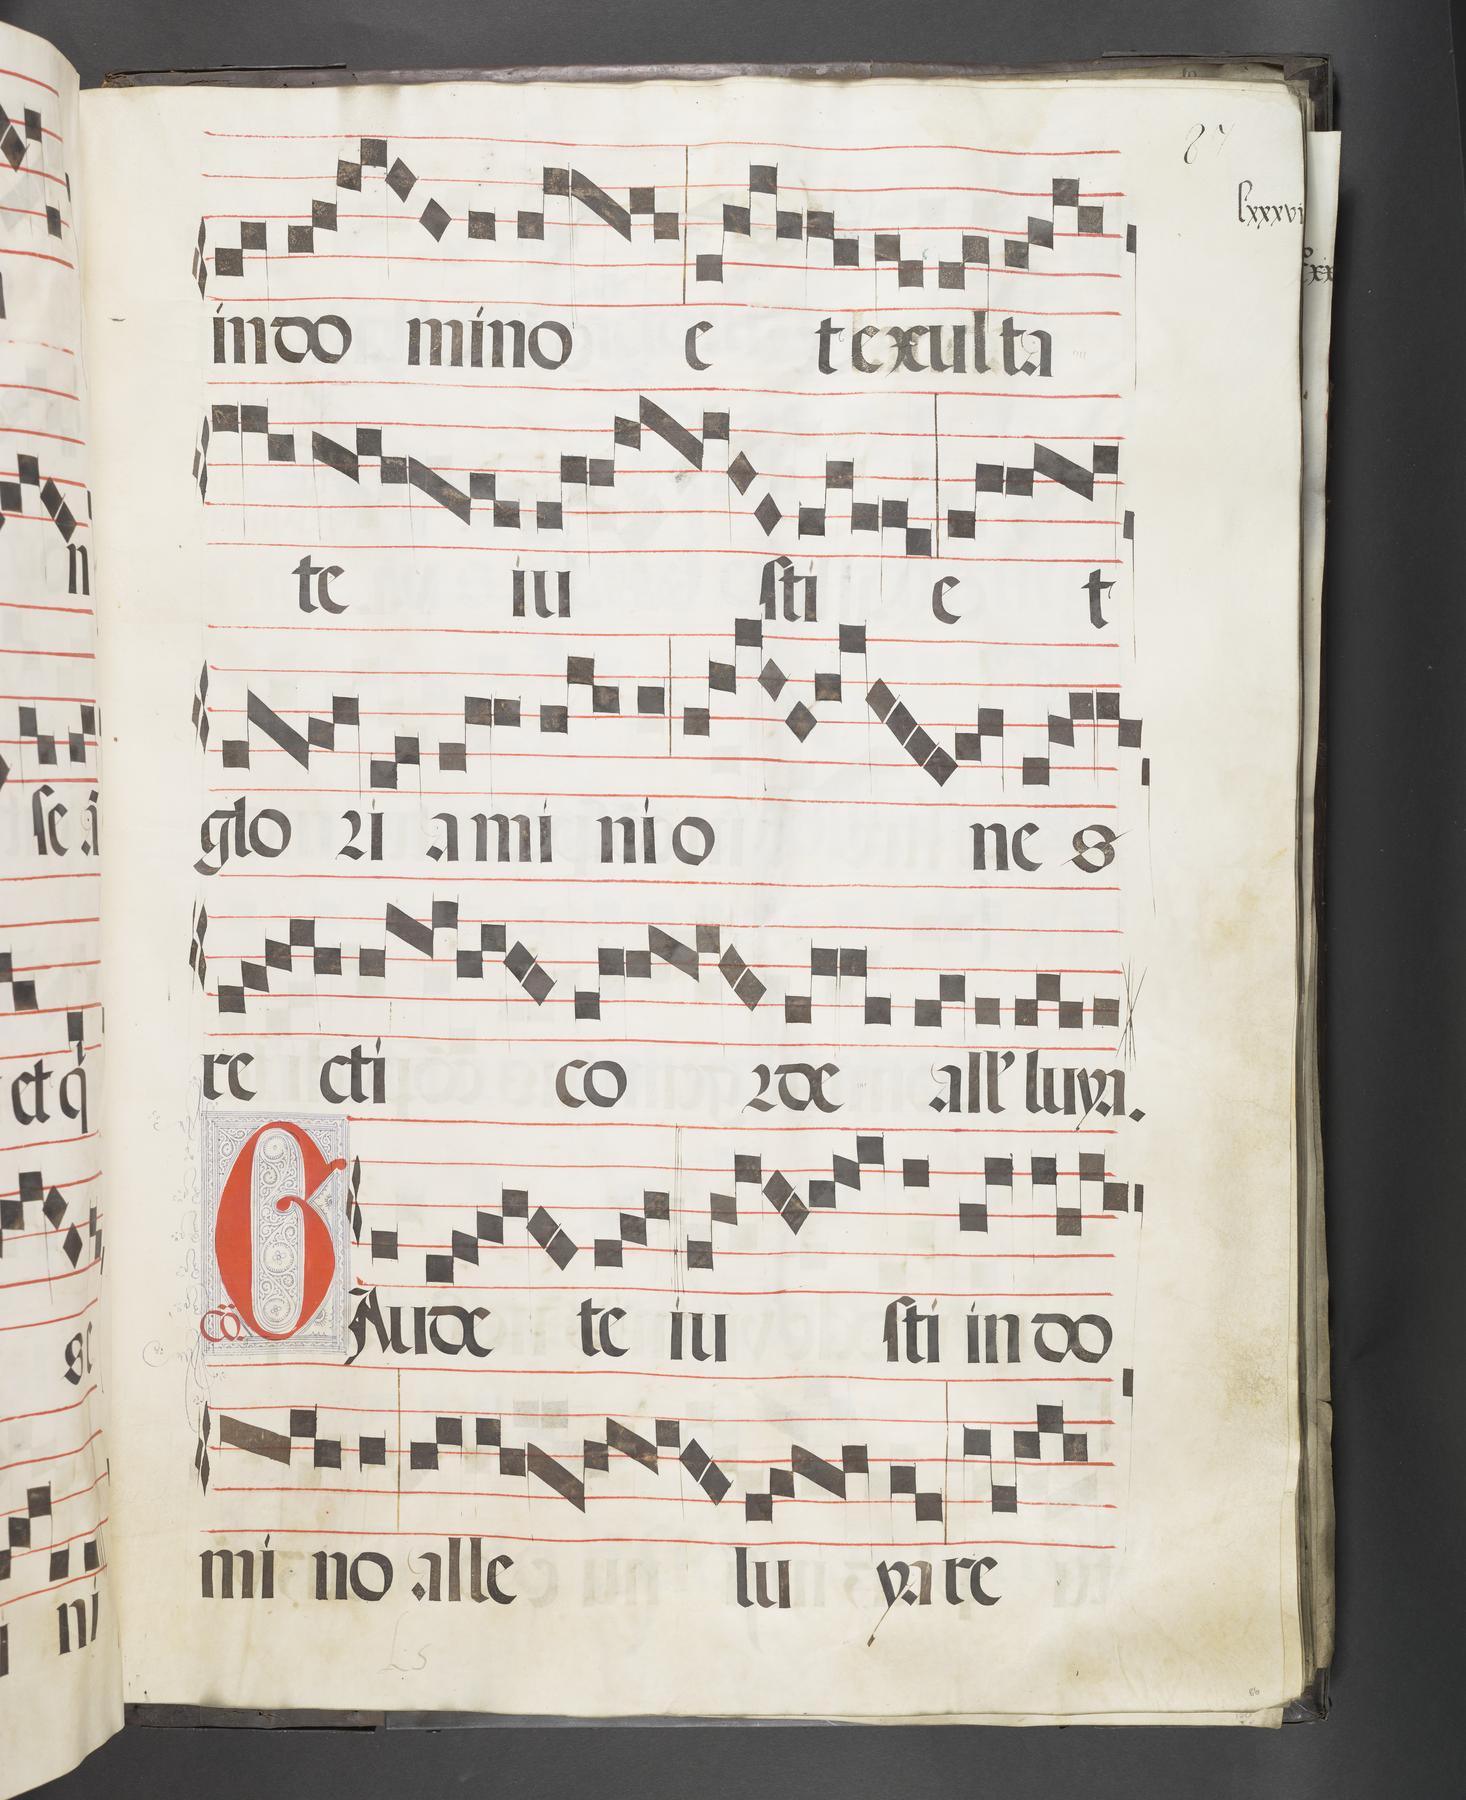 87
lxxxvi
indo mino e t exulta
te iu sti e t
glo ri a mi ni o ne s
re cti co rde all' luya.
Cō. GAude te iu sti in do
mi no alle lu ya re
n
se
et q
se
ni
Ls
86